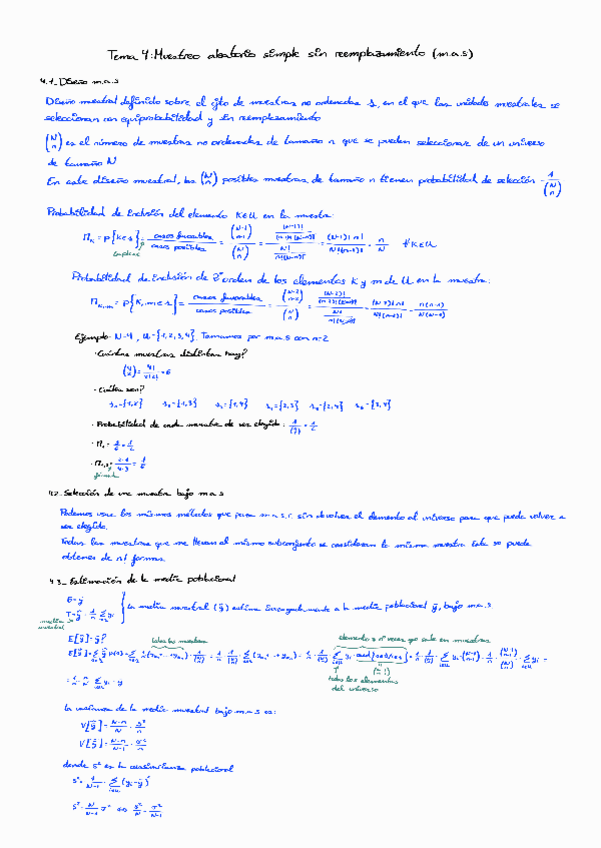 Tema 4: Muestreo aleatorio simple sin reemplazamiento (m.a.s)
4.1_ Diseño m.a.s
Diseño muestral definido sobre el cjto de muestras no ordenadas S, en el que las unidades muestrales se
seleccionan con equiprobabilidad y sin reemplazamiento
(N n) es el número de muestras no ordenadas de tamaño n que se pueden seleccionar de un universo
de tamaño N
En este diseño muestral, las (N n) posibles muestras de tamaño n tienen probabilidad de selección = 1/(N n)
Probabilidad de inclusión del elemento K∈U en la muestra:
Π_K = P{K∈s} = casos favorables/casos posibles = (N-1 n-1)/(N n) = = (N-1)! n!/N!(n-1)! = n/N ∀K∈U
Probabilidad de inclusión de 2º orden de los elementos K y m de U en la muestra:
Π_K,m = P{K,m∈s} = casos favorables/casos posibles = (N-2 n-2)/(N n) = = (N-2)! n!/N!(n-2)! = n(n-1)/N(N-1)
Ejemplo: N=4, U={1,2,3,4}. Tomamos por m.a.s con n=2
· ¿Cuántas muestras distintas hay?
(4 2) = 4!/2!2! = 6
· ¿Cuáles son?
s₁={1,2} s₂={1,3} s₃={1,4} s₄={2,3} s₅={2,4} s₆={3,4}
· Probabilidad de cada muestra de ser elegida: 1/(4 2) = 1/6
4.2_ Selección de una muestra bajo m.a.s
Podemos usar los mismos métodos que para m.a.s.r. sin devolver el elemento al universo para que pueda volver a
ser elegido.
Todas las muestras que me llevan al mismo subconjunto se consideran la misma muestra. Esta se puede
obtener de n! formas.
4.3_ Estimación de la media poblacional
θ=ȳ
T=ŷ = 1/n Σ yᵢ
La media muestral (ŷ) estima insesgadamente a la media poblacional ȳ, bajo m.a.s
media muestral
E[ŷ]=ȳ?
todas las muestras
elemento x nº veces que sale en muestras
todos los elementos
del universo
= 1/n · n/N · Σ yᵢ = ȳ
La varianza de la media muestral bajo m.a.s es:
V[ŷ] = N-n/N · S²/n
V[ŷ] = N-n/N-1 · σ²/n
donde S² es la cuasivarianza poblacional
S² = 1/N-1 · Σ (yᵢ-ȳ)²
S² = N/N-1 σ² ⇔ S²/N = σ²/N-1